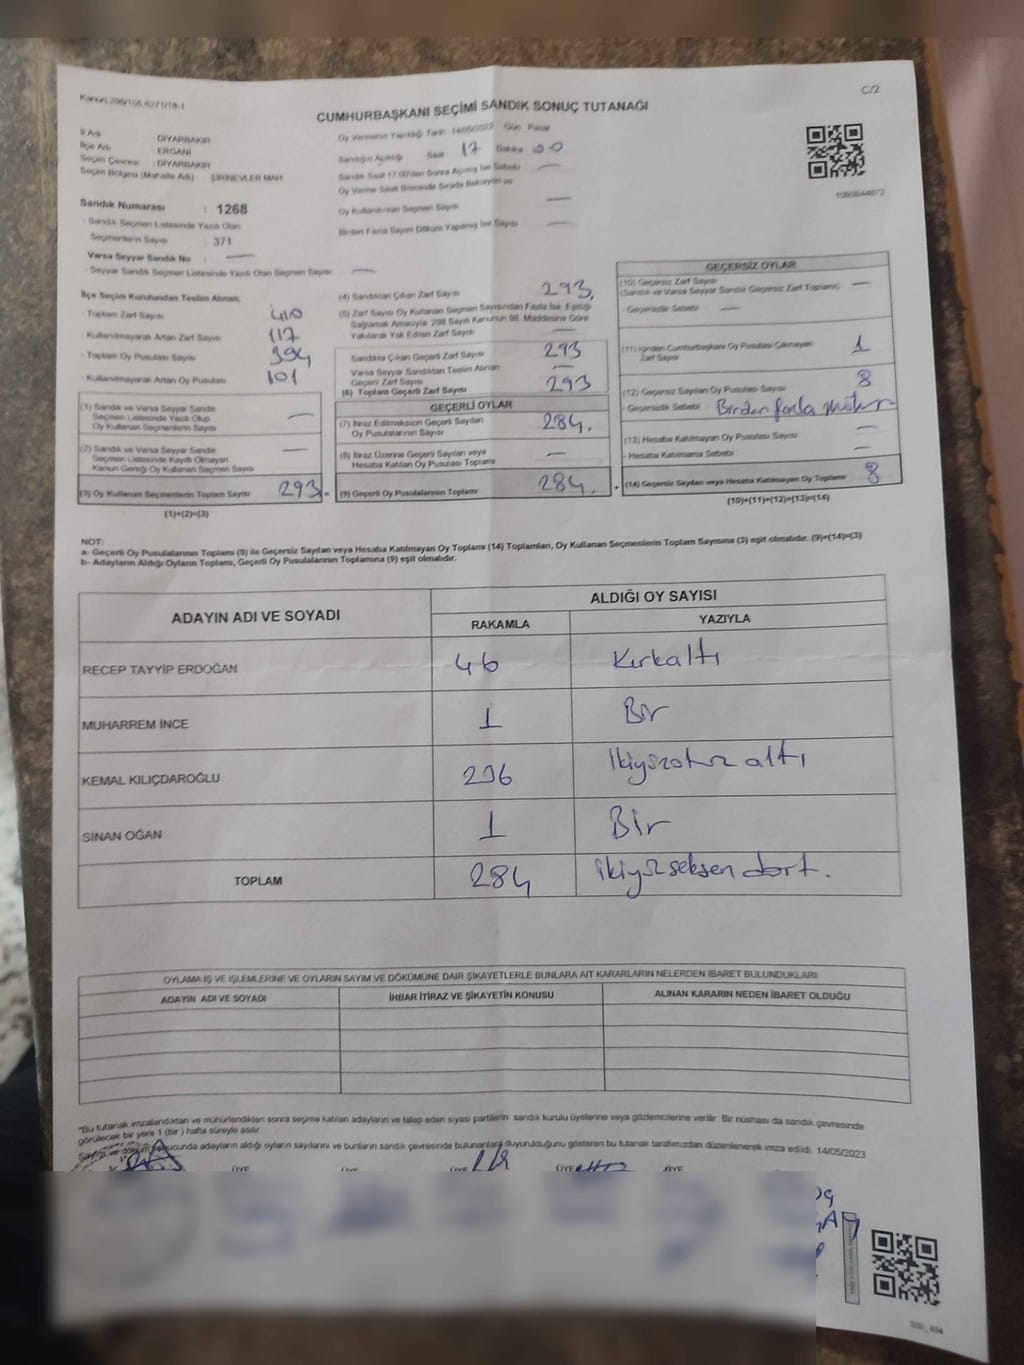 Kanun:298/105,6271/18-1
C/2
CUMHURBAŞKANI SEÇİMİ SANDIK SONUÇ TUTANAĞI
İl Adı DİYARBAKIR
İlçe Adı ERGANİ
Seçim Çevresi : DİYARBAKIR
Seçim Bölgesi (Mahalle Adı) ŞİRİNEVLER MAH.
Oy Vermenin Yapıldığı Tarih 14/05/2023 Gün Pazar
Sandığın Açıldığı Saat 17 Dakika 00
Sandık Saat 17:00'den Sonra Açılmış İse Sebebi —
Oy Verme Saati Bitiminde Sırada Bekleyen ve
Oy Kullandırılan Seçmen Sayısı —
Birden Fazla Sayım Döküm Yapılmış İse Sayısı —
1090844872
Sandık Numarası : 1268
- Sandık Seçmen Listesinde Yazılı Olan
Seçmenlerin Sayısı : 371
Varsa Seyyar Sandık No : —
- Seyyar Sandık Listesinde Yazılı Olan Seçmen Sayısı —
İlçe Seçim Kurulundan Teslim Alınan;
- Toplam Zarf Sayısı 410
- Kullanılmayarak Artan Zarf Sayısı 117
- Toplam Oy Pusulası Sayısı 394
- Kullanılmayarak Artan Oy Pusulası 101
(1) Sandık ve Varsa Seyyar Sandık
Seçmen Listesinde Yazılı Olup
Oy Kullanan Seçmenlerin Sayısı —
(2) Sandık ve Varsa Seyyar Sandık
Seçmen Listesinde Kayıtlı Olmayan
Kanun Gereği Oy Kullanan Seçmen Sayısı —
(3) Oy Kullanan Seçmenlerin Toplam Sayısı 293 =
(1)+(2)=(3)
(4) Sandıktan Çıkan Zarf Sayısı 293.
(5) Zarf Sayısı Oy Kullanan Seçmen Sayısından Fazla İse, Eşitliği
Sağlamak Amacıyla; 298 Sayılı Kanunun 98. Maddesine Göre
Yakılarak Yok Edilen Zarf Sayısı —
Sandıkta Çıkan Geçerli Zarf Sayısı 293
Varsa Seyyar Sandıktan Teslim Alınan
Geçerli Zarf Sayısı —
(6) Toplam Geçerli Zarf Sayısı 293
GEÇERLİ OYLAR
(7) İtiraz Edilmeksizin Geçerli Sayılan
Oy Pusulalarının Sayısı 284.
(8) İtiraz Üzerine Geçerli Sayılan veya
Hesaba Katılan Oy Pusulası Toplamı —
(9) Geçerli Oy Pusulalarının Toplamı 284. +
GEÇERSİZ OYLAR
(10) Geçersiz Zarf Sayısı
(Sandık ve Varsa Seyyar Sandık Geçersiz Zarf Toplamı) —
- Geçersizlik Sebebi : —
(11) İçinden Cumhurbaşkanı Oy Pusulası Çıkmayan
Zarf Sayısı 1
(12) Geçersiz Sayılan Oy Pusulası Sayısı 8
- Geçersizlik Sebebi : Birden fazla mühür
(13) Hesaba Katılmayan Oy Pusulası Sayısı —
- Hesaba Katılmama Sebebi —
(14) Geçersiz Sayılan veya Hesaba Katılmayan Oy Toplamı 8
(10)+(11)+(12)+(13)=(14)
NOT:
a- Geçerli Oy Pusulalarının Toplamı (9) ile Geçersiz Sayılan veya Hesaba Katılmayan Oy Toplamı (14) Toplamları, Oy Kullanan Seçmenlerin Toplam Sayısına (3) eşit olmalıdır. (9)+(14)=(3)
b- Adayların Aldığı Oyların Toplamı, Geçerli Oy Pusulalarının Toplamına (9) eşit olmalıdır.
ADAYIN ADI VE SOYADI
ALDIĞI OY SAYISI
RAKAMLA YAZIYLA
RECEP TAYYİP ERDOĞAN 46 Kırkaltı
MUHARREM İNCE 1 Bir
KEMAL KILIÇDAROĞLU 236 İkiyüzotuz altı
SİNAN OĞAN 1 Bir
TOPLAM 284 ikiyüz seksen dört.
OYLAMA İŞ VE İŞLEMLERİNE VE OYLARIN SAYIM VE DÖKÜMÜNE DAİR ŞİKAYETLERLE BUNLARA AİT KARARLARIN NELERDEN İBARET BULUNDUKLARI
ADAYIN ADI VE SOYADI İHBAR İTİRAZ VE ŞİKAYETİN KONUSU ALINAN KARARIN NEDEN İBARET OLDUĞU
*Bu tutanak imzalandıktan ve mühürlendikten sonra seçime katılan adayların ve talep eden siyasi partilerin sandık kurulu üyelerine veya gözlemcilerine verilir. Bir nüshası da sandık çevresinde
görülecek bir yere 1 (bir) hafta süreyle asılır.
Sayım ve döküm sonucunda adayların aldığı oyların sayılarını ve bunların sandık çevresinde bulunanlara duyurulduğunu gösteren bu tutanak tarafımızdan düzenlenerek imza edildi. 14/05/2023
ÜYE ÜYE ÜYE ÜYE ÜYE